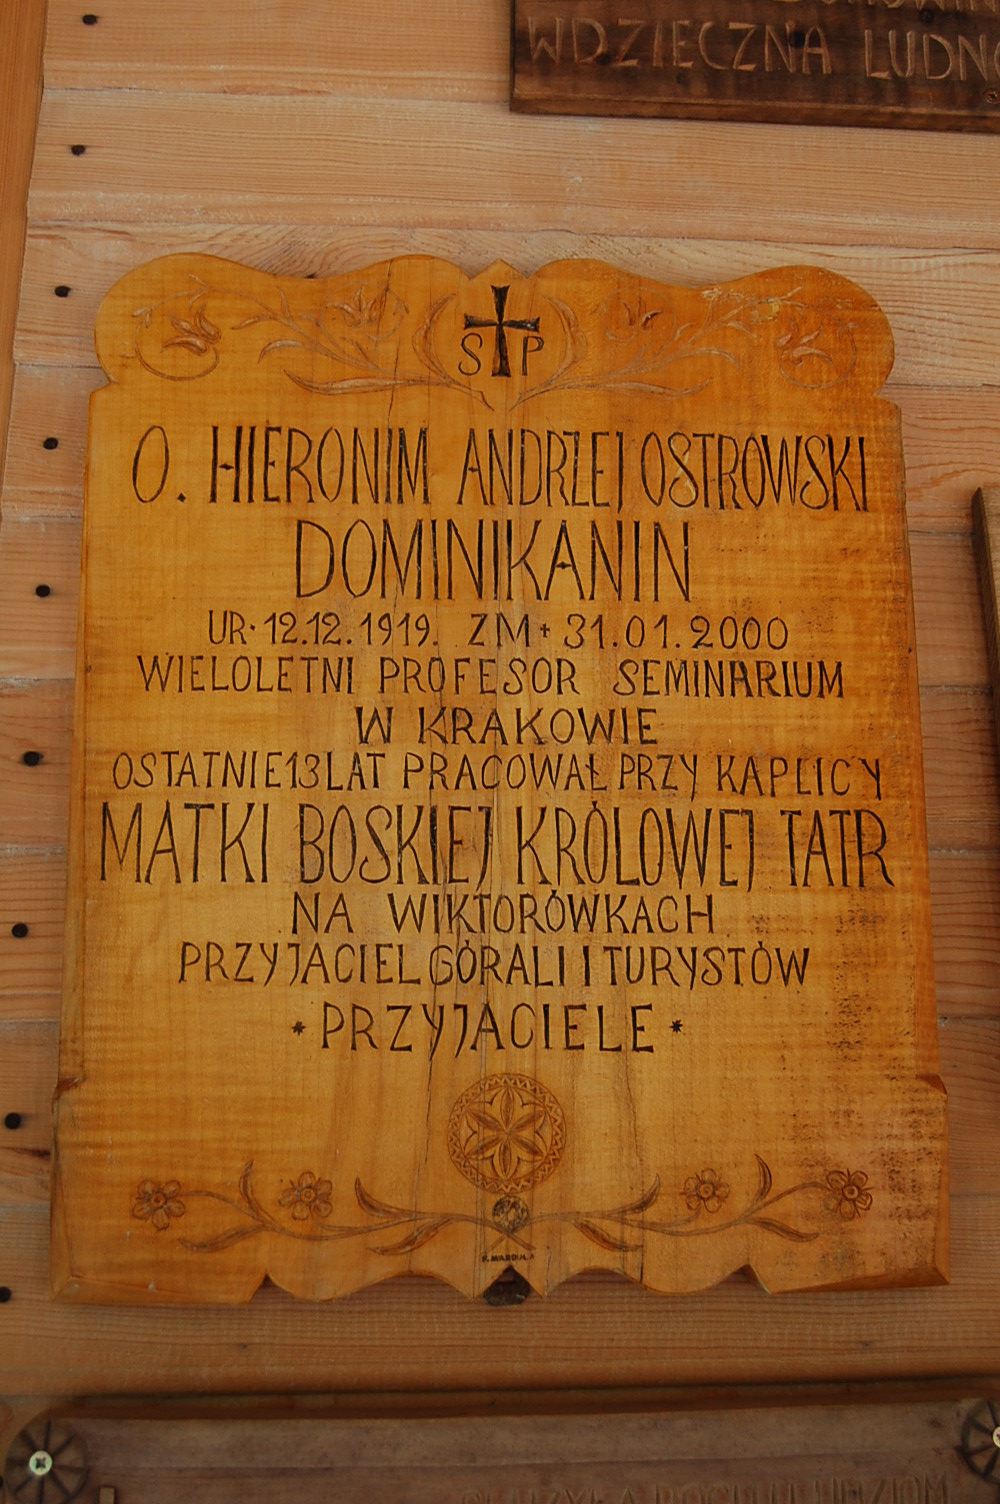 WDZIĘCZNA LUDNO
S P
O. HIERONIM ANDRZEJ OSTROWSKI
DOMINIKANIN
UR. 12.12.1919. ZM + 31.01.2000
WIELOLETNI PROFESOR SEMINARIUM
W KRAKOWIE
OSTATNIE 13 LAT PRACOWAŁ PRZY KAPLICY
MATKI BOSKIEJ KRÓLOWEJ TATR
NA WIKTORÓWKACH
PRZYJACIEL GÓRALI I TURYSTÓW
* PRZYJACIELE *